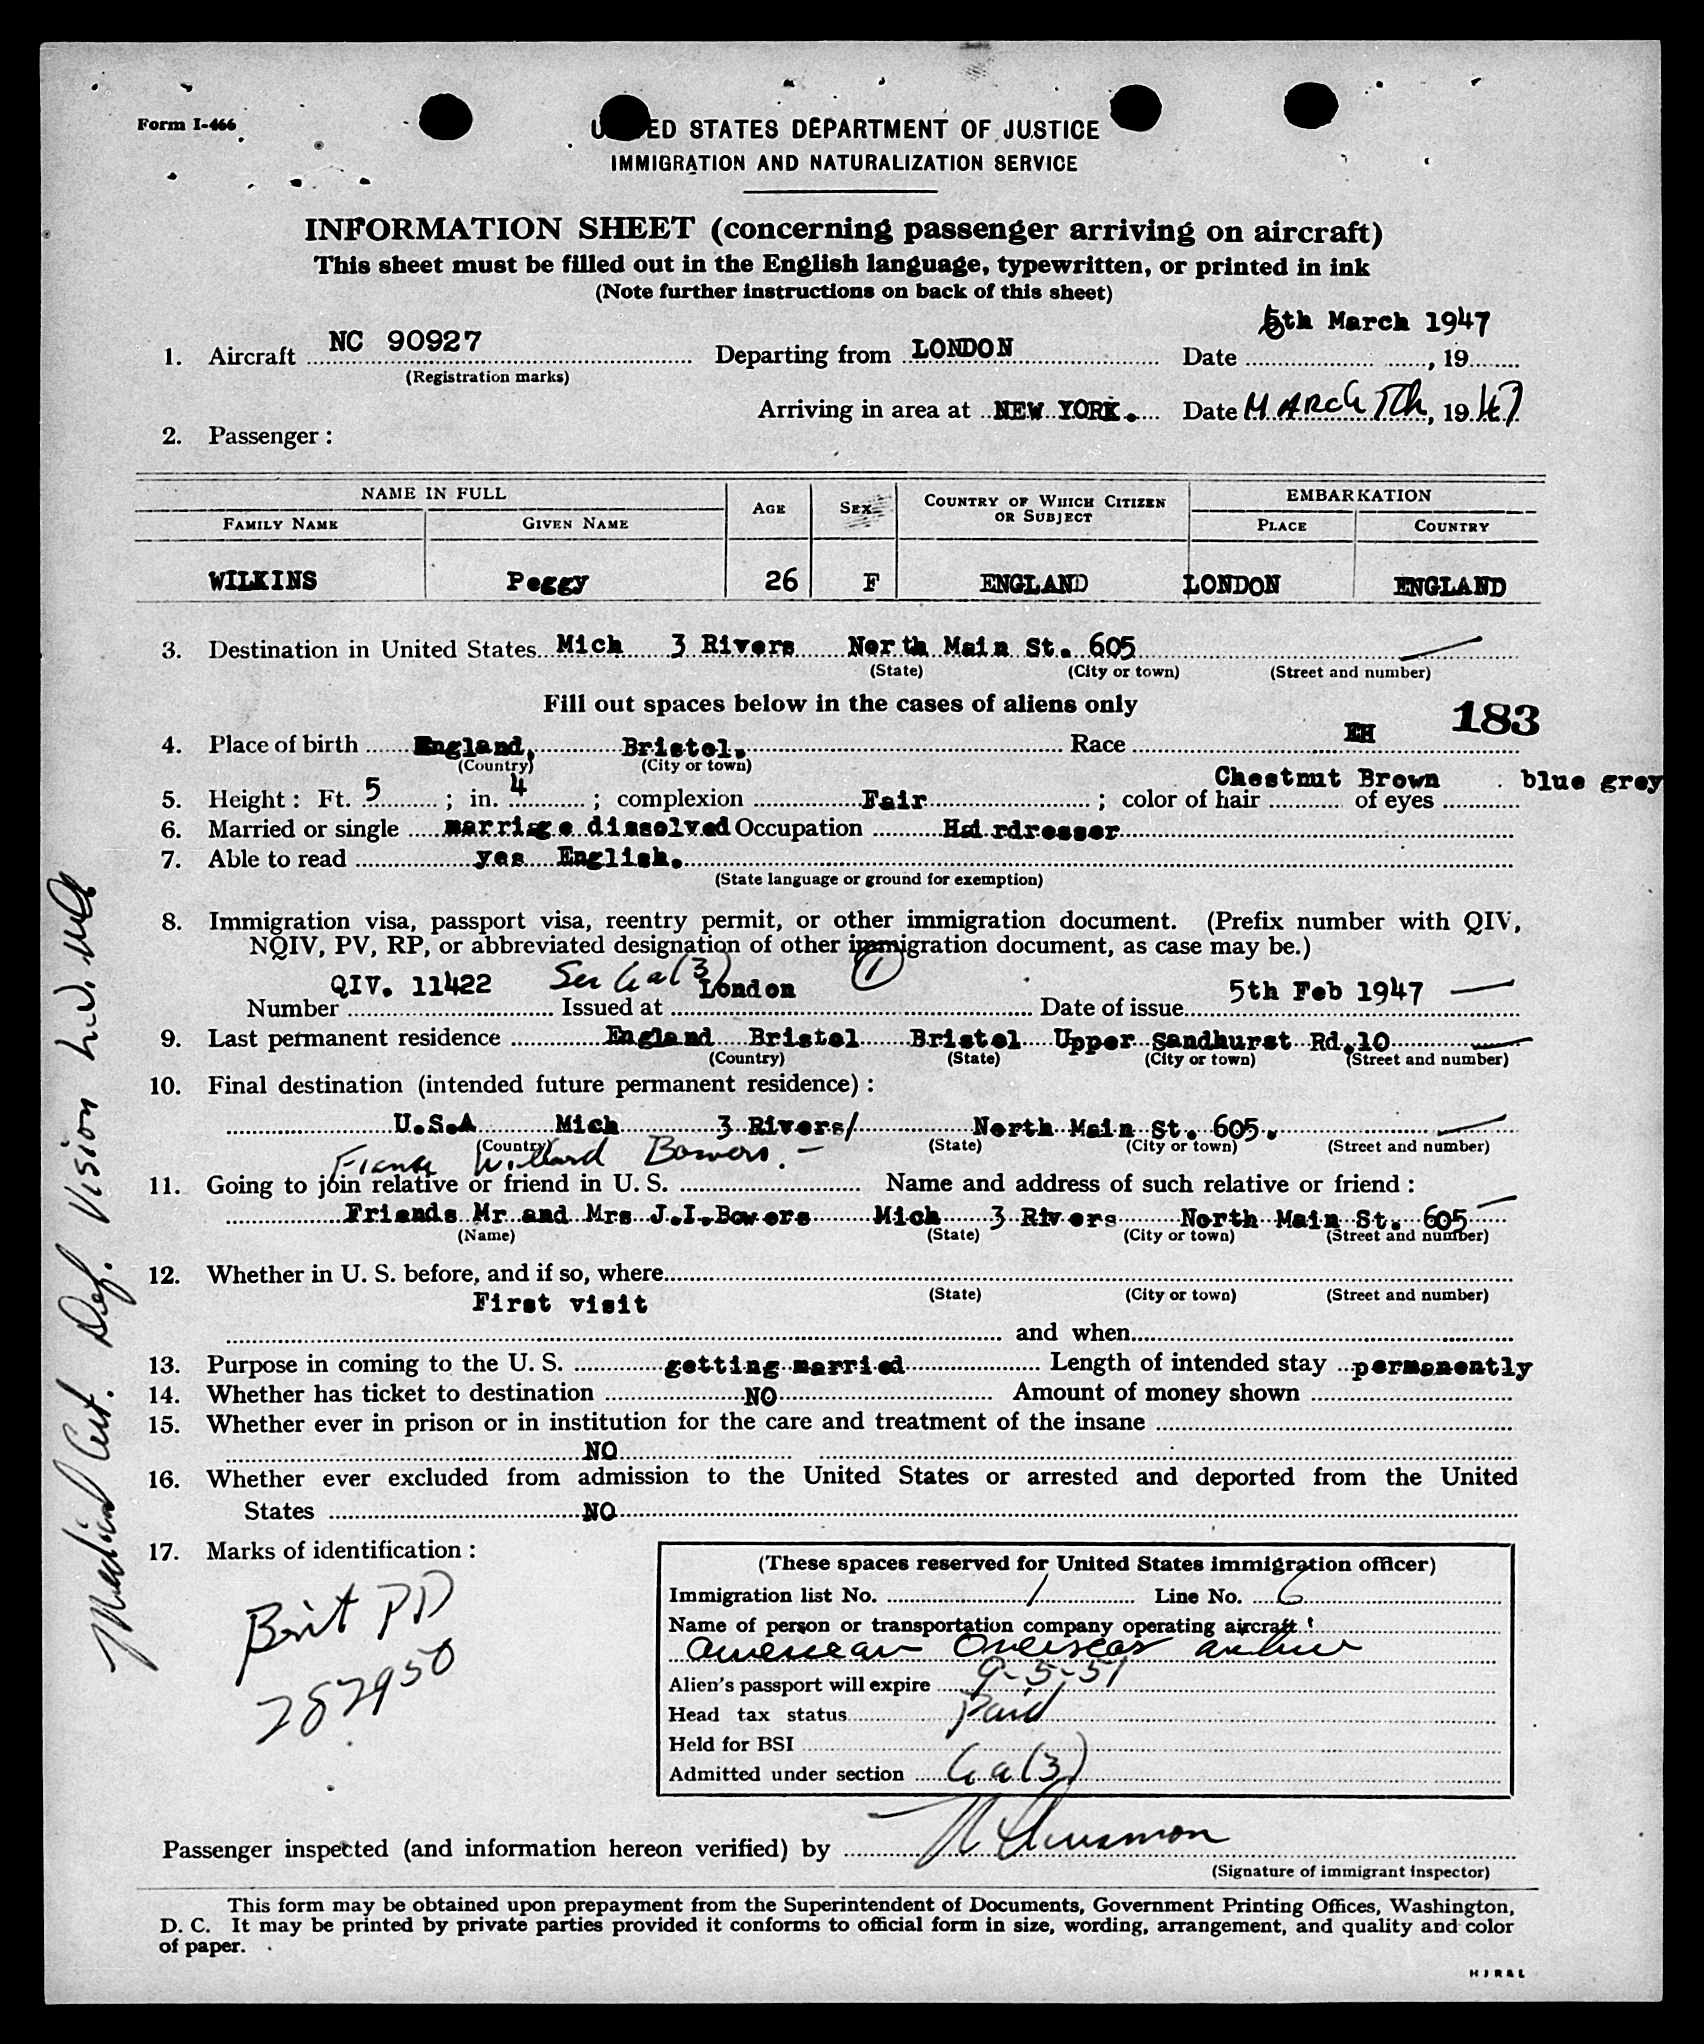 Form I-466
UNITED STATES DEPARTMENT OF JUSTICE
IMMIGRATION AND NATURALIZATION SERVICE
INFORMATION SHEET (concerning passenger arriving on aircraft)
This sheet must be filled out in the English language, typewritten, or printed in ink
(Note further instructions on back of this sheet)
5th March 1947
1. Aircraft NC 90927 Departing from LONDON Date , 19
(Registration marks)
Arriving in area at NEW YORK. Date MARCH 7th, 1947
2. Passenger :
NAME IN FULL AGE SEX COUNTRY OF WHICH CITIZEN OR SUBJECT EMBARKATION
FAMILY NAME GIVEN NAME PLACE COUNTRY
WILKINS Peggy 26 F ENGLAND LONDON ENGLAND
3. Destination in United States Mich 3 Rivers North Main St. 605
(State) (City or town) (Street and number)
Fill out spaces below in the cases of aliens only
183
4. Place of birth England, Bristol. Race EH
(Country) (City or town)
Chestnut Brown blue grey
5. Height : Ft. 5 ; in. 4 ; complexion Fair ; color of hair of eyes
6. Married or single marriage dissolved Occupation Hairdresser
7. Able to read yes English.
(State language or ground for exemption)
8. Immigration visa, passport visa, reentry permit, or other immigration document. (Prefix number with QIV,
NQIV, PV, RP, or abbreviated designation of other immigration document, as case may be.)
Sec 6a(3) 1
Number QIV. 11422 Issued at London Date of issue 5th Feb 1947
9. Last permanent residence England Bristol Bristol Upper Sandhurst Rd.10
(Country) (State) (City or town) (Street and number)
10. Final destination (intended future permanent residence) :
U.S.A Mich 3 Rivers/ North Main St. 605.
(Country) (State) (City or town) (Street and number)
Fiance Willard Bowers. -
11. Going to join relative or friend in U. S. Name and address of such relative or friend :
Friends Mr and Mrs J.I.Bowers Mich 3 Rivers North Main St. 605
(Name) (State) (City or town) (Street and number)
12. Whether in U. S. before, and if so, where
First visit (State) (City or town) (Street and number)
and when
13. Purpose in coming to the U. S. getting married Length of intended stay permanently
14. Whether has ticket to destination NO Amount of money shown
15. Whether ever in prison or in institution for the care and treatment of the insane
NO
16. Whether ever excluded from admission to the United States or arrested and deported from the United
States NO
17. Marks of identification :
Brit PP
787950
Medical Cert. Def. Vision
(These spaces reserved for United States immigration officer)
Immigration list No. 1 Line No. 6
Name of person or transportation company operating aircraft
American Overseas Airline
Alien's passport will expire 9-5-51
Head tax status Paid
Held for BSI
Admitted under section 6a(3)
Passenger inspected (and information hereon verified) by
(Signature of immigrant inspector)
This form may be obtained upon prepayment from the Superintendent of Documents, Government Printing Offices, Washington,
D. C. It may be printed by private parties provided it conforms to official form in size, wording, arrangement, and quality and color
of paper.